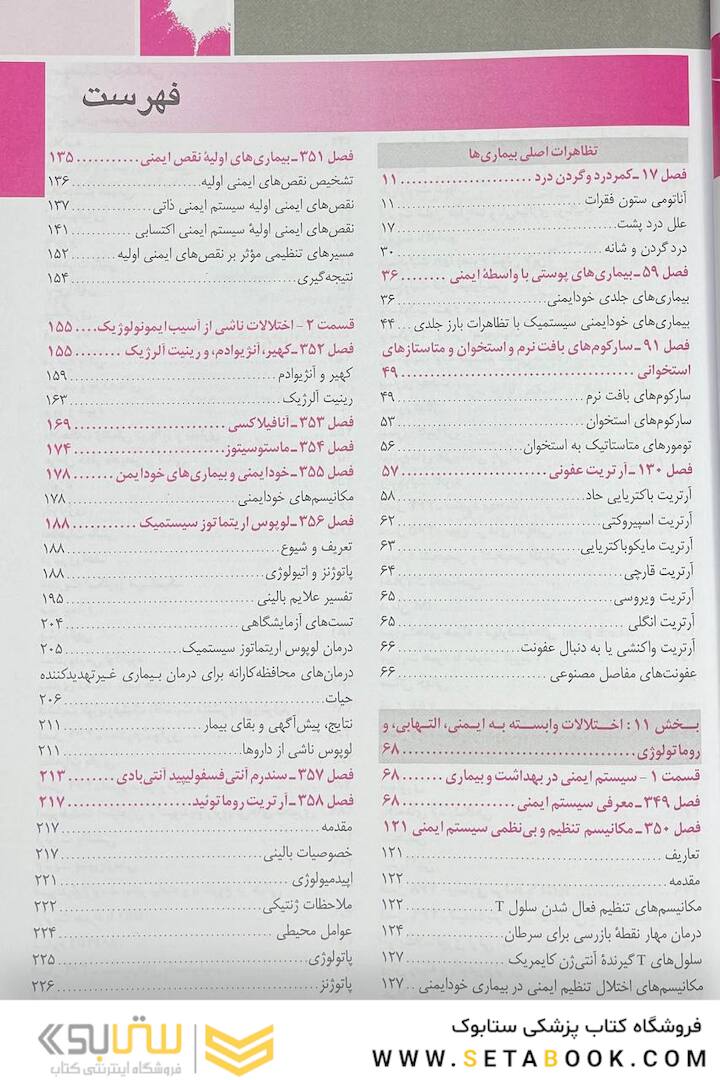 فهرست
تظاهرات اصلی بیماری‌ها
فصل ۱۷ ـ کمردرد و گردن درد ........................ ۱۱
آناتومی ستون فقرات ........................ ۱۱
علل درد پشت ........................ ۱۷
درد گردن و شانه ........................ ۳۰
فصل ۵۹ ـ بیماری‌های پوستی با واسطهٔ ایمنی ........ ۳۶
بیماری‌های جلدی خودایمنی ........................ ۳۶
بیماری‌های خودایمنی سیستمیک با تظاهرات بارز جلدی ... ۴۴
فصل ۹۱ ـ سارکوم‌های بافت نرم و استخوان و متاستازهای
استخوانی ........................ ۴۹
سارکوم‌های بافت نرم ........................ ۴۹
سارکوم‌های استخوان ........................ ۵۳
تومورهای متاستاتیک به استخوان ........................ ۵۶
فصل ۱۳۰ ـ آرتریت عفونی ........................ ۵۷
آرتریت باکتریایی حاد ........................ ۵۸
آرتریت اسپیروکتی ........................ ۶۲
آرتریت مایکوباکتریایی ........................ ۶۳
آرتریت قارچی ........................ ۶۴
آرتریت ویروسی ........................ ۶۵
آرتریت انگلی ........................ ۶۵
آرتریت واکنشی یا به دنبال عفونت ........................ ۶۶
عفونت‌های مفاصل مصنوعی ........................ ۶۶
بخش ۱۱: اختلالات وابسته به ایمنی، التهابی، و
روماتولوژی ........................ ۶۸
قسمت ۱ – سیستم ایمنی در بهداشت و بیماری ....... ۶۸
فصل ۳۴۹ ـ معرفی سیستم ایمنی ............... ۶۸
فصل ۳۵۰ ـ مکانیسم تنظیم و بی‌نظمی سیستم ایمنی ۱۲۱
تعاریف ........................ ۱۲۱
مقدمه ........................ ۱۲۲
مکانیسم‌های تنظیم فعال شدن سلول T ........................ ۱۲۲
درمان مهار نقطهٔ بازرسی برای سرطان ........................ ۱۲۴
سلول‌های T گیرندهٔ آنتی‌ژن کایمریک ........................ ۱۲۷
مکانیسم‌های اختلال تنظیم ایمنی در بیماری خودایمنی ... ۱۲۷
فصل ۳۵۱ ـ بیماری‌های اولیهٔ نقص ایمنی ........... ۱۳۵
تشخیص نقص‌های ایمنی اولیه ........................ ۱۳۶
نقص‌های ایمنی اولیه سیستم ایمنی ذاتی ............... ۱۳۷
نقص‌های ایمنی اولیهٔ سیستم ایمنی اکتسابی ............ ۱۴۱
مسیرهای تنظیمی مؤثر بر نقص‌های ایمنی اولیه ......... ۱۵۲
نتیجه‌گیری ........................ ۱۵۴
قسمت ۲ – اختلالات ناشی از آسیب ایمونولوژیک .... ۱۵۵
فصل ۳۵۲ ـ کهیر، آنژیوادم، و رینیت آلرژیک ........ ۱۵۵
کهیر و آنژیوادم ........................ ۱۵۹
رینیت آلرژیک ........................ ۱۶۳
فصل ۳۵۳ ـ آنافیلاکسی ........................ ۱۶۹
فصل ۳۵۴ ـ ماستوسیتوز ........................ ۱۷۴
فصل ۳۵۵ ـ خودایمنی و بیماری‌های خودایمن ....... ۱۷۸
مکانیسم‌های خودایمنی ........................ ۱۷۸
فصل ۳۵۶ ـ لوپوس اریتماتوز سیستمیک ........... ۱۸۸
تعریف و شیوع ........................ ۱۸۸
پاتوژنز و اتیولوژی ........................ ۱۸۸
تفسیر علایم بالینی ........................ ۱۹۵
تست‌های آزمایشگاهی ........................ ۲۰۴
درمان لوپوس اریتماتوز سیستمیک ............... ۲۰۵
درمان‌های محافظه‌کارانه برای درمان بیماری غیرتهدیدکننده
حیات ........................ ۲۰۶
نتایج، پیش‌آگهی و بقای بیمار ........................ ۲۱۱
لوپوس ناشی از داروها ........................ ۲۱۱
فصل ۳۵۷ ـ سندرم آنتی‌فسفولیپید آنتی‌بادی ........ ۲۱۳
فصل ۳۵۸ ـ آرتریت روماتوئید ........................ ۲۱۷
مقدمه ........................ ۲۱۷
خصوصیات بالینی ........................ ۲۱۷
اپیدمیولوژی ........................ ۲۲۱
ملاحظات ژنتیکی ........................ ۲۲۲
عوامل محیطی ........................ ۲۲۴
پاتولوژی ........................ ۲۲۵
پاتوژنز ........................ ۲۲۶
فروشگاه کتاب پزشکی ستابوک
WWW.SETABOOK.COM
ستابوک
فروشگاه اینترنتی کتاب